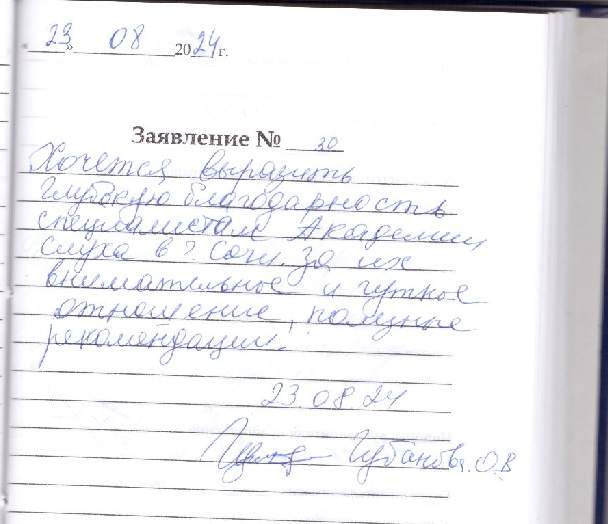 23 08 2024 г.
Заявление № 30
Хочется выразить
глубокую благодарность
специалистам Академии
слуха в г Сочи за их
внимательное и чуткое
отношение, полезные
рекомендации.
23.08 24
Губанова О.В